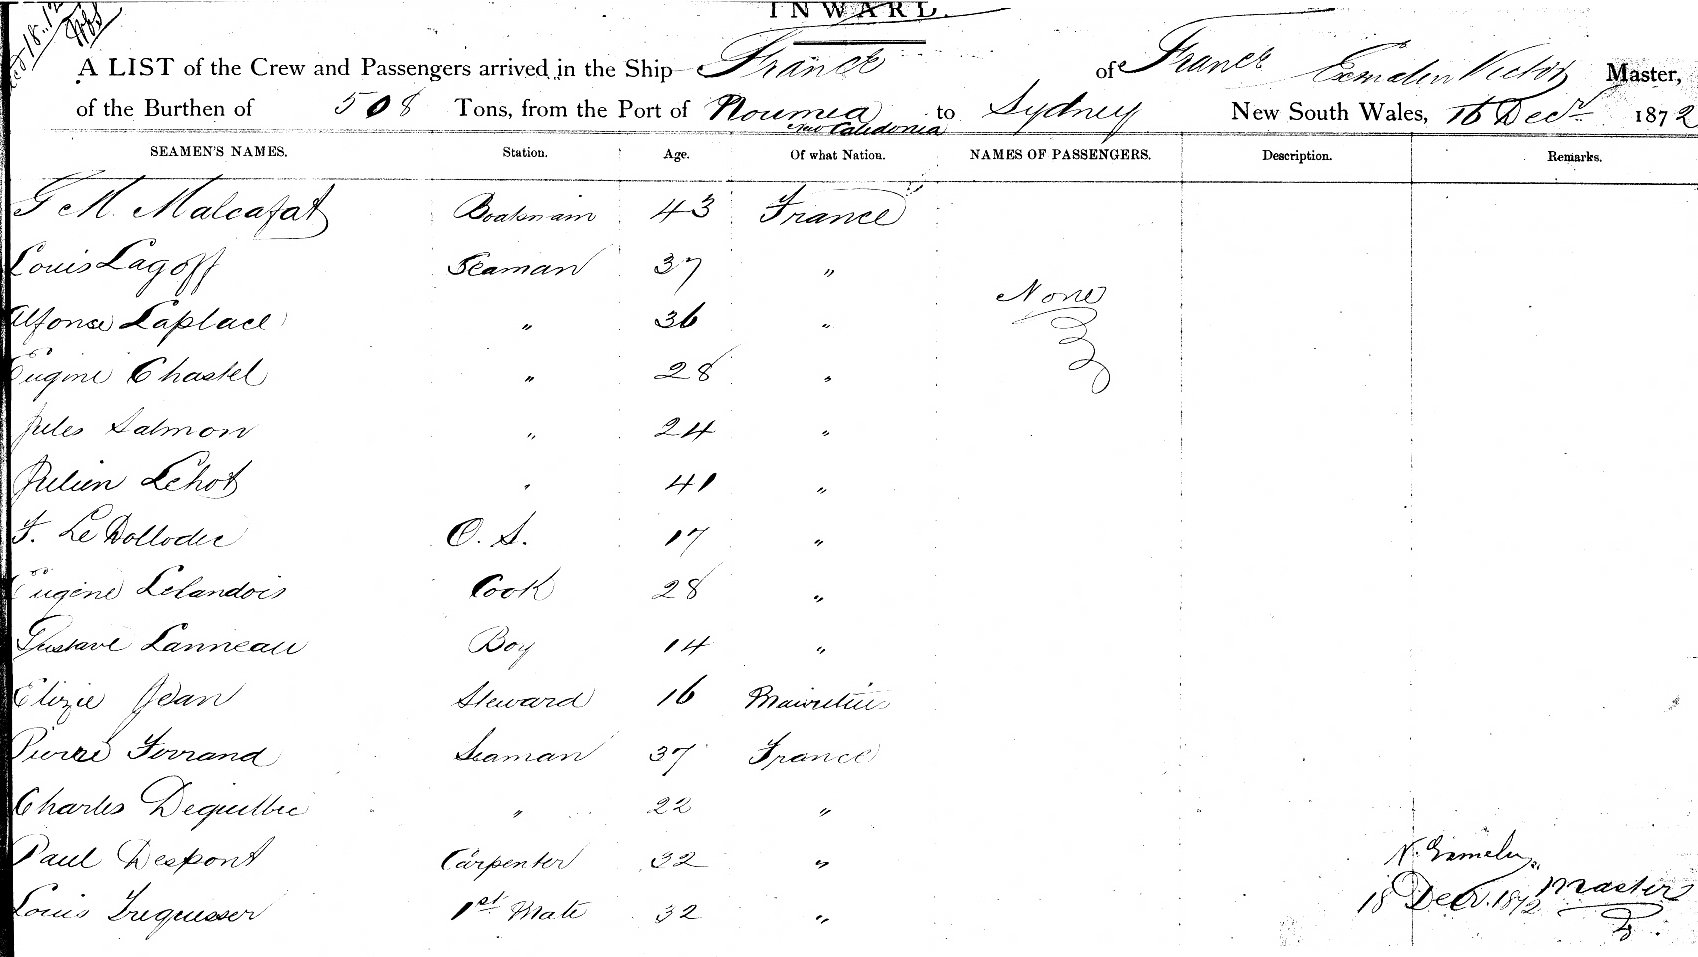 INWARD.
A LIST of the Crew and Passengers arrived in the Ship France of France Victor Master,
of the Burthen of 508 Tons, from the Port of Noumea New Caledonia to Sydney New South Wales, 16 Decr 1872
SEAMEN'S NAMES. Station. Age. Of what Nation. NAMES OF PASSENGERS. Description. Remarks.
G M. Malcafat 43 France
Louis Lagoff Seaman 37 "
None
Alfonse Laplace " 36 "
Eugene Chastel " 28 "
Jules Salmon " 24 "
Julien Lehot " 41 "
F. Le Dollodec O. S. 17 "
Eugène Lelandois Cook 28 "
Gustave Lanneau Boy 14 "
Elizie Jean Steward 16 Mauritius
Pierre Ferrand Seaman 37 France
Charles " 22 "
Paul Despont Carpenter 32 "
Louis 1st Mate 32 "
Master
18 Decr. 1872